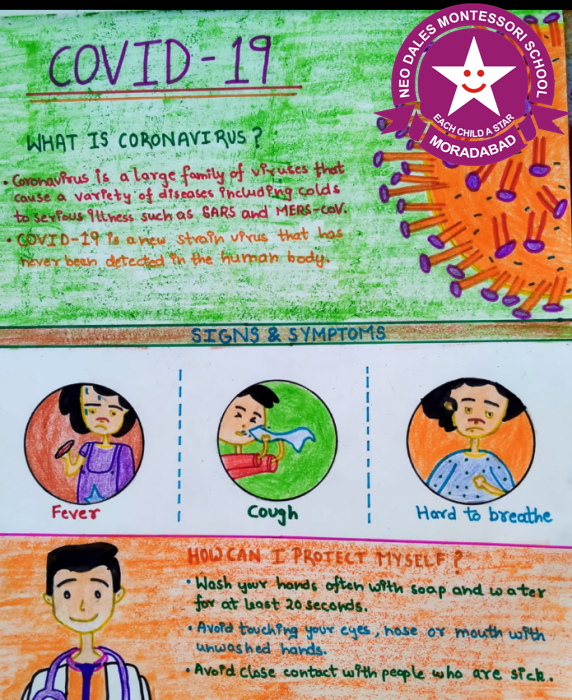 NEO DALES MONTESSORI SCHOOL
EACH CHILD A STAR
MORADABAD
COVID-19
WHAT IS CORONAVIRUS?
• Coronavirus is a large family of viruses that
cause a variety of diseases including colds
to serious illness such as SARS and MERS-COV.
• COVID-19 is a new strain virus that has
never been detected in the human body.
SIGNS & SYMPTOMS
Fever
Cough
Hard to breathe
HOW CAN I PROTECT MYSELF?
• Wash your hands often with soap and water
for at least 20 seconds.
• Avoid touching your eyes, nose or mouth with
unwashed hands.
• Avoid close contact with people who are sick.